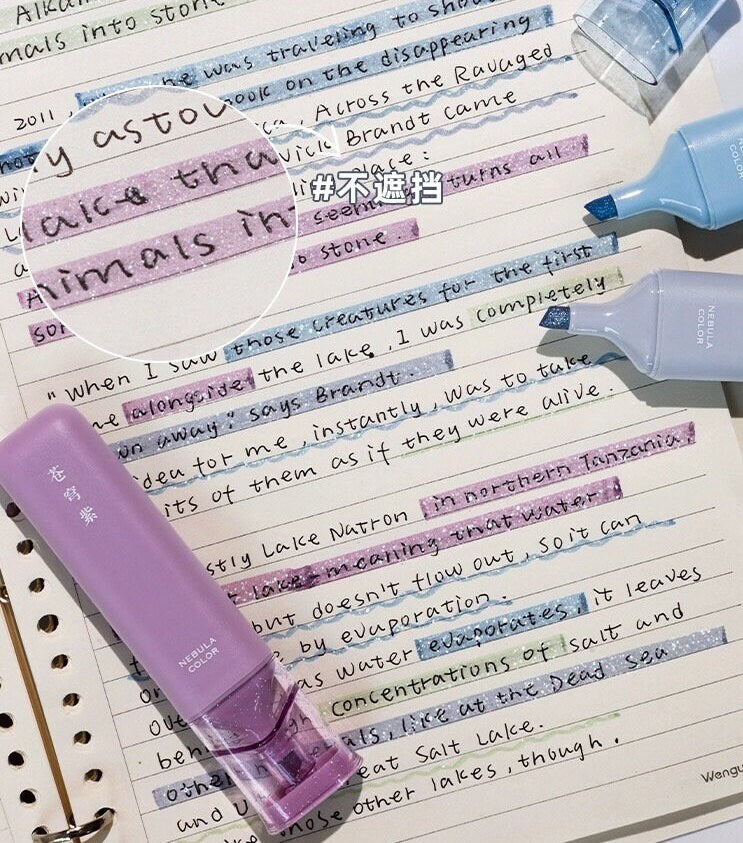 Alkali
mals into stone
he was traveling to shoot
2011, book on the disappearing
Across the Ravaged
vick Brandt came
place:
y astou
lake tha
Animals in
#不遮挡
seems turns all
to stone.
"When I saw those creatures for the first
alongside the lake, I was completely
on away." says Brandt.
idea for me, instantly, was to take
its of them as if they were alive.
stly Lake Natron in northern Tanzania,
lake - meaning that water
but doesn't flow out, so it can
by evaporation.
as water evaporates, it leaves
concentrations of salt and
like at the Dead Sea
eat Salt Lake.
those other lakes, though.
苍穹紫
NEBULA
COLOR
NEBULA
COLOR
Wengu